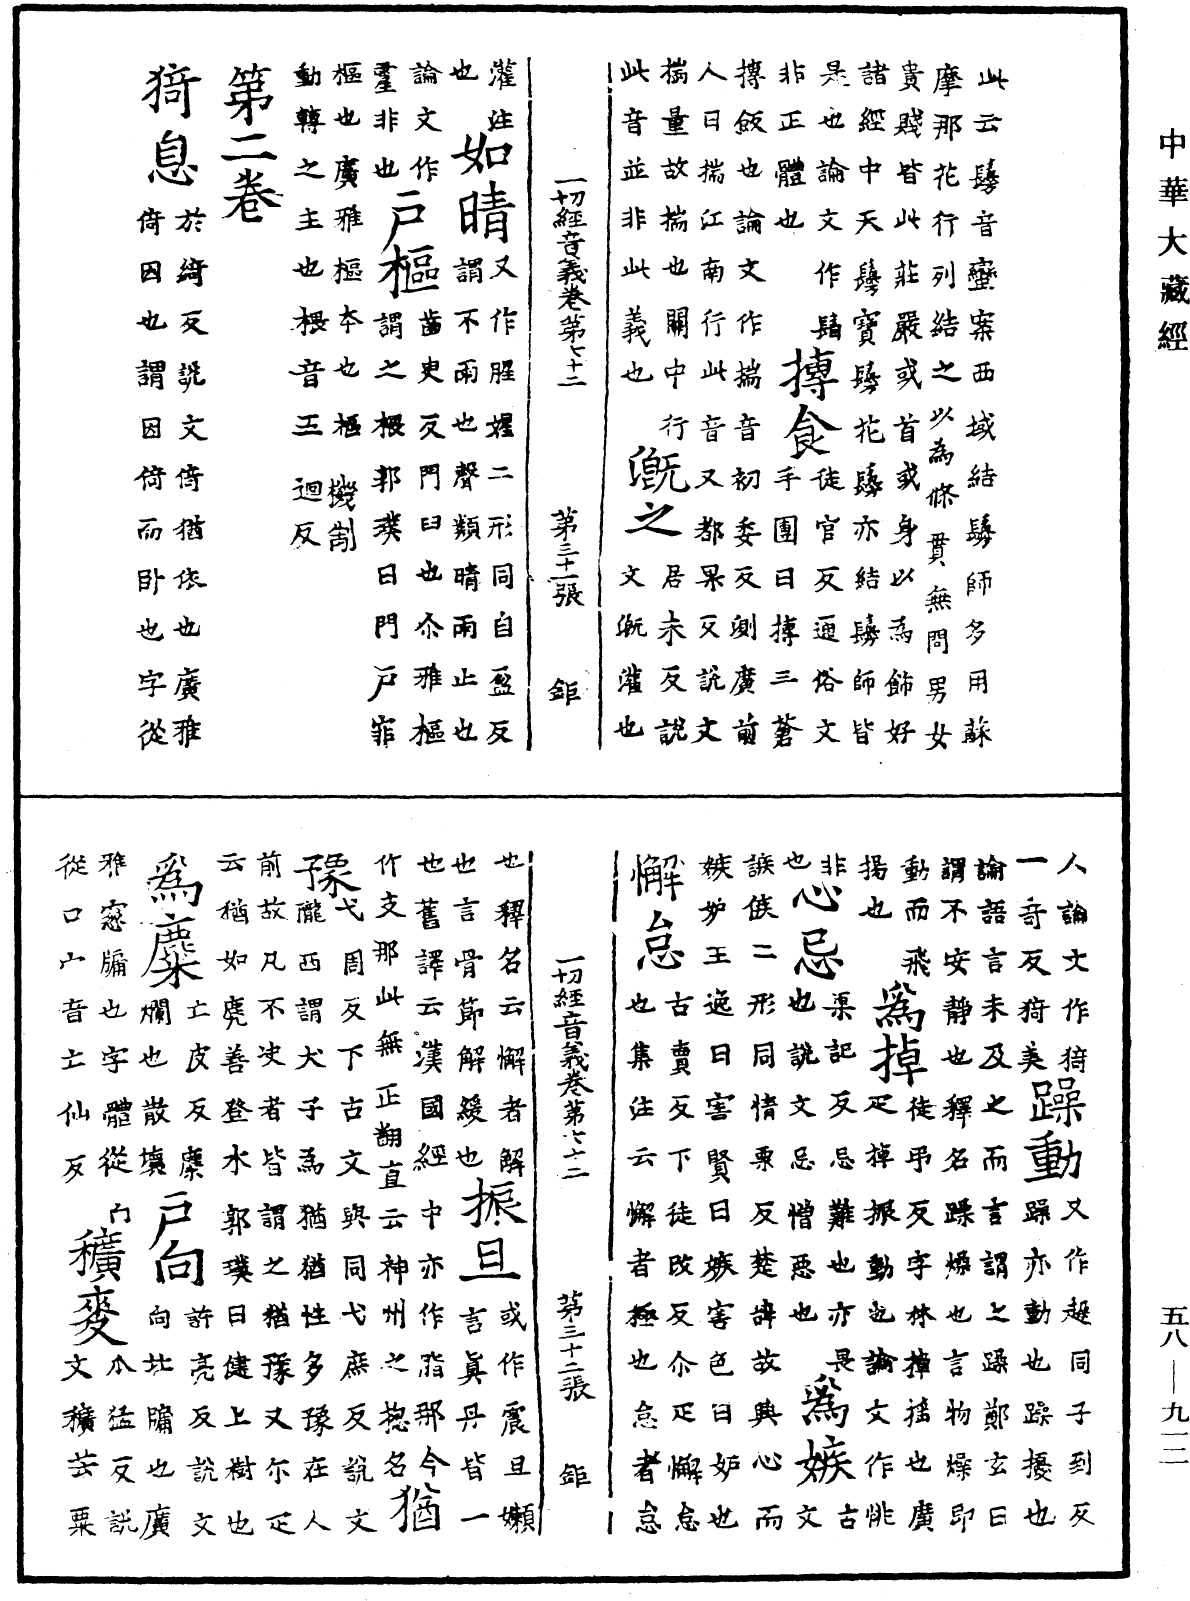 中華大藏經
此云鬘音蠻案西域結鬘師多用蘇
摩那花行列結之以為條貫無問男女
貴賤皆此莊嚴或首或身以為飾好
諸經中天鬘寶鬘花鬘亦結鬘師皆
是也論文作𩭤
非正體也
摶食
徒官反通俗文
手團曰摶三蒼
摶飯也論文作揣音初委反測度前
人曰揣江南行此音又都果反說文
揣量故揣也關中行居未反說
此音並非此義也
溉之
文溉灌也
一切經音義卷第七十二　第三十一張　鉅
灌注
也
如晴
又作腥𡖋二形同自盈反
謂不雨也聲類晴雨止也
論文作
䨩非也
戶樞
齒臾反門臼也尒雅樞
謂之椳郭璞曰門戶扉
樞也廣雅樞本也樞機制
動轉之主也椳音五迴反
第二卷
猗息
於綺反說文倚猶依也廣雅
倚因也謂因倚而臥也字從
人論文作猗
一奇反猗美
躁動
又作趮同子到反
躁亦動也躁擾也
論語言未及之而言謂之躁鄭玄曰
謂不安靜也釋名躁燥也言物燥即
動而飛
揚也
為掉
徒弔反字林掉搖也廣
疋掉振動也論文作恌
非
也
心忌
渠記反忌難也亦畏
也說文忌憎惡也
為嫉
古
文
誺㑵二形同情栗反楚辭故興心而
嫉妒王逸曰害賢曰嫉害色曰妒也
懈怠
古賣反下徒改反尒疋懈怠
也集注云懈者極也怠者怠
一切經音義卷第七十二　第三十二張　鉅
也釋名云懈者解
也言骨節解緩也
振旦
或作震旦嬾
言真丹皆一
也舊譯云漢國經中亦作脂那今
作支那此無正翻直云神州之揔名
猶
豫
弋周反下古文與同弋庶反說文
隴西謂犬子為猶猶性多豫在人
前故凡不決者皆謂之猶豫又尒疋
云猶如麂善登木郭璞曰健上樹也
為糜
亡皮反糜
爛也散壞
戶向
許亮反說文
向北牖也廣
雅窻牖也字體從
從口宀音亡仙反
穬麥
古猛反說
文穬芒粟
五八—九一二